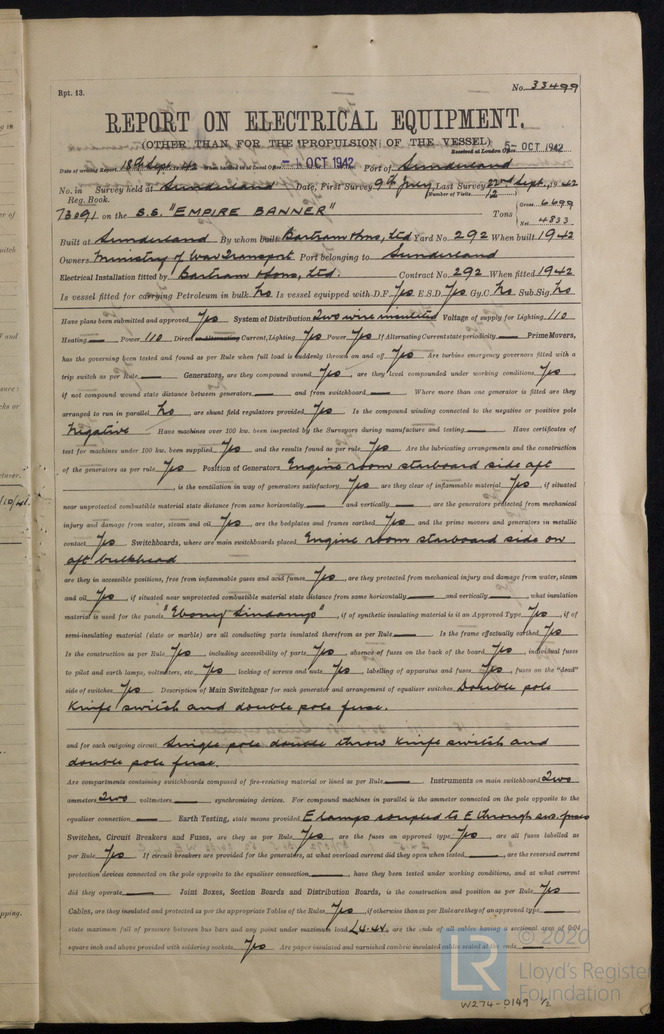 Rpt. 13.
No. 33499
REPORT ON ELECTRICAL EQUIPMENT.
(OTHER THAN FOR THE PROPULSION OF THE VESSEL)
Received at London Office 6- OCT 1942
Date of writing Report 18th Sept. 1942 When handed in at Local Office - 1 OCT 1942 Port of Sunderland
No. in Survey held at Sunderland Date, First Survey 9th Last Survey 22nd Sept., 1942
Reg. Book. (Number of Visits 12)
73091 on the S.S. "EMPIRE BANNER" Tons Gross 6699 Net 4833
Built at Sunderland By whom built Bartram & Sons, Ltd Yard No. 292 When built 1942
Owners Ministry of War Transport Port belonging to Sunderland
Electrical Installation fitted by Bartram & Sons, Ltd. Contract No. 292 When fitted 1942
Is vessel fitted for carrying Petroleum in bulk No Is vessel equipped with D.F. Yes E.S.D. Yes Gy.C. No Sub.Sig. No
Have plans been submitted and approved Yes System of Distribution Two wire insulated Voltage of supply for Lighting 110
Heating — Power 110 Direct or Alternating Current, Lighting Yes Power Yes If Alternating Current state periodicity — Prime Movers,
has the governing been tested and found as per Rule when full load is suddenly thrown on and off Yes Are turbine emergency governors fitted with a
trip switch as per Rule — Generators, are they compound wound Yes, are they level compounded under working conditions Yes,
if not compound wound state distance between generators — and from switchboard — Where more than one generator is fitted are they
arranged to run in parallel No, are shunt field regulators provided Yes Is the compound winding connected to the negative or positive pole
Negative Have machines over 100 kw. been inspected by the Surveyors during manufacture and testing — Have certificates of
test for machines under 100 kw. been supplied Yes and the results found as per rule Yes Are the lubricating arrangements and the construction
of the generators as per rule Yes Position of Generators Engine room starboard side aft
, is the ventilation in way of generators satisfactory Yes, are they clear of inflammable material Yes, if situated
near unprotected combustible material state distance from same horizontally — and vertically —, are the generators protected from mechanical
injury and damage from water, steam and oil Yes, are the bedplates and frames earthed Yes and the prime movers and generators in metallic
contact Yes Switchboards, where are main switchboards placed Engine room starboard side on
aft bulkhead
are they in accessible positions, free from inflammable gases and acid fumes Yes, are they protected from mechanical injury and damage from water, steam
and oil Yes, if situated near unprotected combustible material state distance from same horizontally — and vertically —, what insulation
material is used for the panels "Ebony Sindanyo", if of synthetic insulating material is it an Approved Type Yes, if of
semi-insulating material (slate or marble) are all conducting parts insulated therefrom as per Rule — Is the frame effectually earthed Yes
Is the construction as per Rule Yes, including accessibility of parts Yes, absence of fuses on the back of the board Yes, individual fuses
to pilot and earth lamps, voltmeters, etc. Yes locking of screws and nuts Yes, labelling of apparatus and fuses Yes, fuses on the "dead"
side of switches Yes Description of Main Switchgear for each generator and arrangement of equaliser switches Double pole
Knife switch and double pole fuse.
and for each outgoing circuit Single pole double throw knife switch and
double pole fuse.
Are compartments containing switchboards composed of fire-resisting material or lined as per Rule — Instruments on main switchboard Two
ammeters Two voltmeters — synchronising devices. For compound machines in parallel is the ammeter connected on the pole opposite to the
equaliser connection — Earth Testing, state means provided E lamps coupled to E through fuses
Switches, Circuit Breakers and Fuses, are they as per Rule Yes, are the fuses an approved type Yes, are all fuses labelled as
per Rule Yes If circuit breakers are provided for the generators, at what overload current did they open when tested —, are the reversed current
protection devices connected on the pole opposite to the equaliser connection —, have they been tested under working conditions, and at what current
did they operate — Joint Boxes, Section Boards and Distribution Boards, is the construction and position as per Rule Yes
Cables, are they insulated and protected as per the appropriate Tables of the Rules Yes, if otherwise than as per Rule are they of an approved type —,
state maximum fall of pressure between bus bars and any point under maximum load L4.4v, are the ends of all cables having a sectional area of 0.04
square inch and above provided with soldering sockets Yes Are paper insulated and varnished cambric insulated cables sealed at the ends —
LR
© 2020
Lloyd's Register
Foundation
W274-0149 1/2